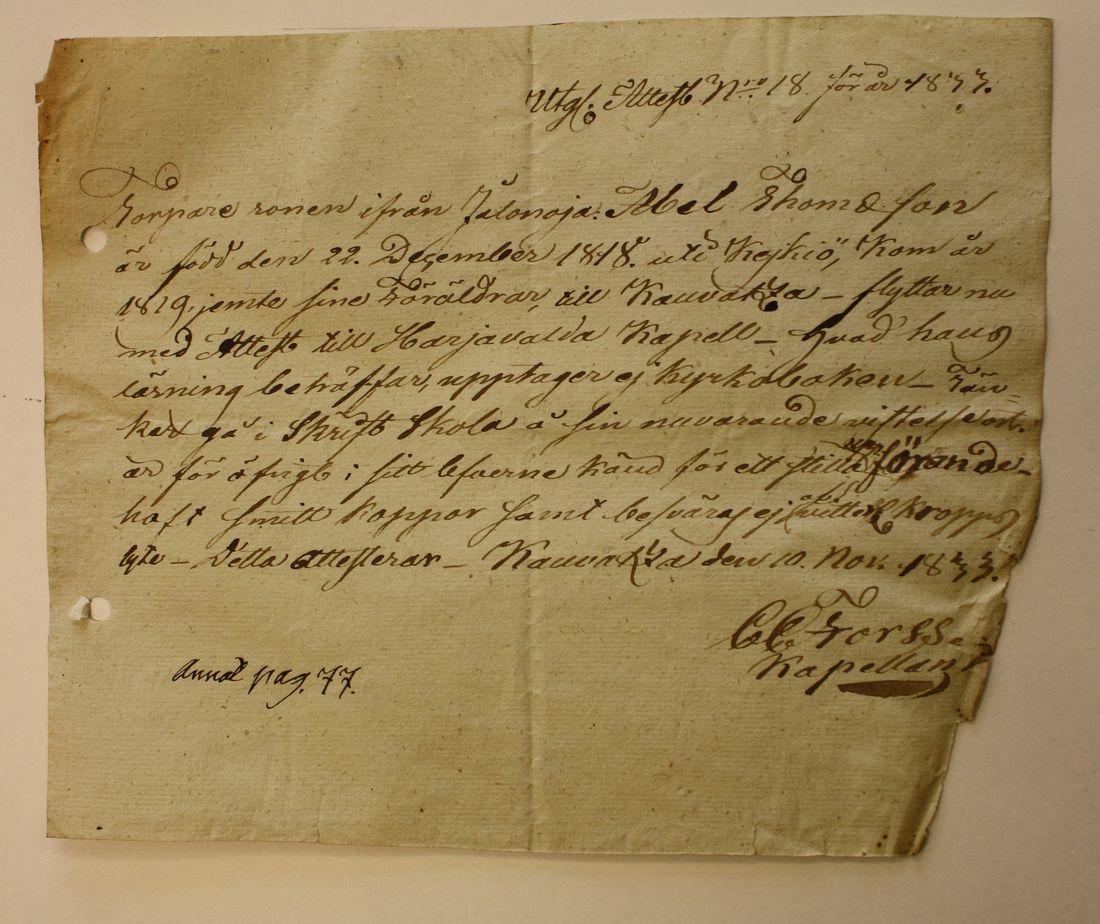 Utgl. Attest Nro 18 för år 1833.
Torpare sonen ifrån Jalonoja: Abel Thomæ son
är född den 22. December 1818. uti Keykiö, Kom år
1819, jemte sine Föräldrar, till Kauvatza – flyttar nu
med Attest till Harjavalda Kapell – Hvad hans
läsning beträffar, upptager ej Kyrkoboken –
gå i Skrift Skola å sin nuvarande vistelse ort.
är för öfrigt i sitt lefverne känd för ett stilla
haft Smitt koppor samt besväras ej af witterl. kropps
lyte – Detta attesterar – Kauvatza den 10. Nov. 1833.
CC Forsse
Kapellan
Annot pag. 77.